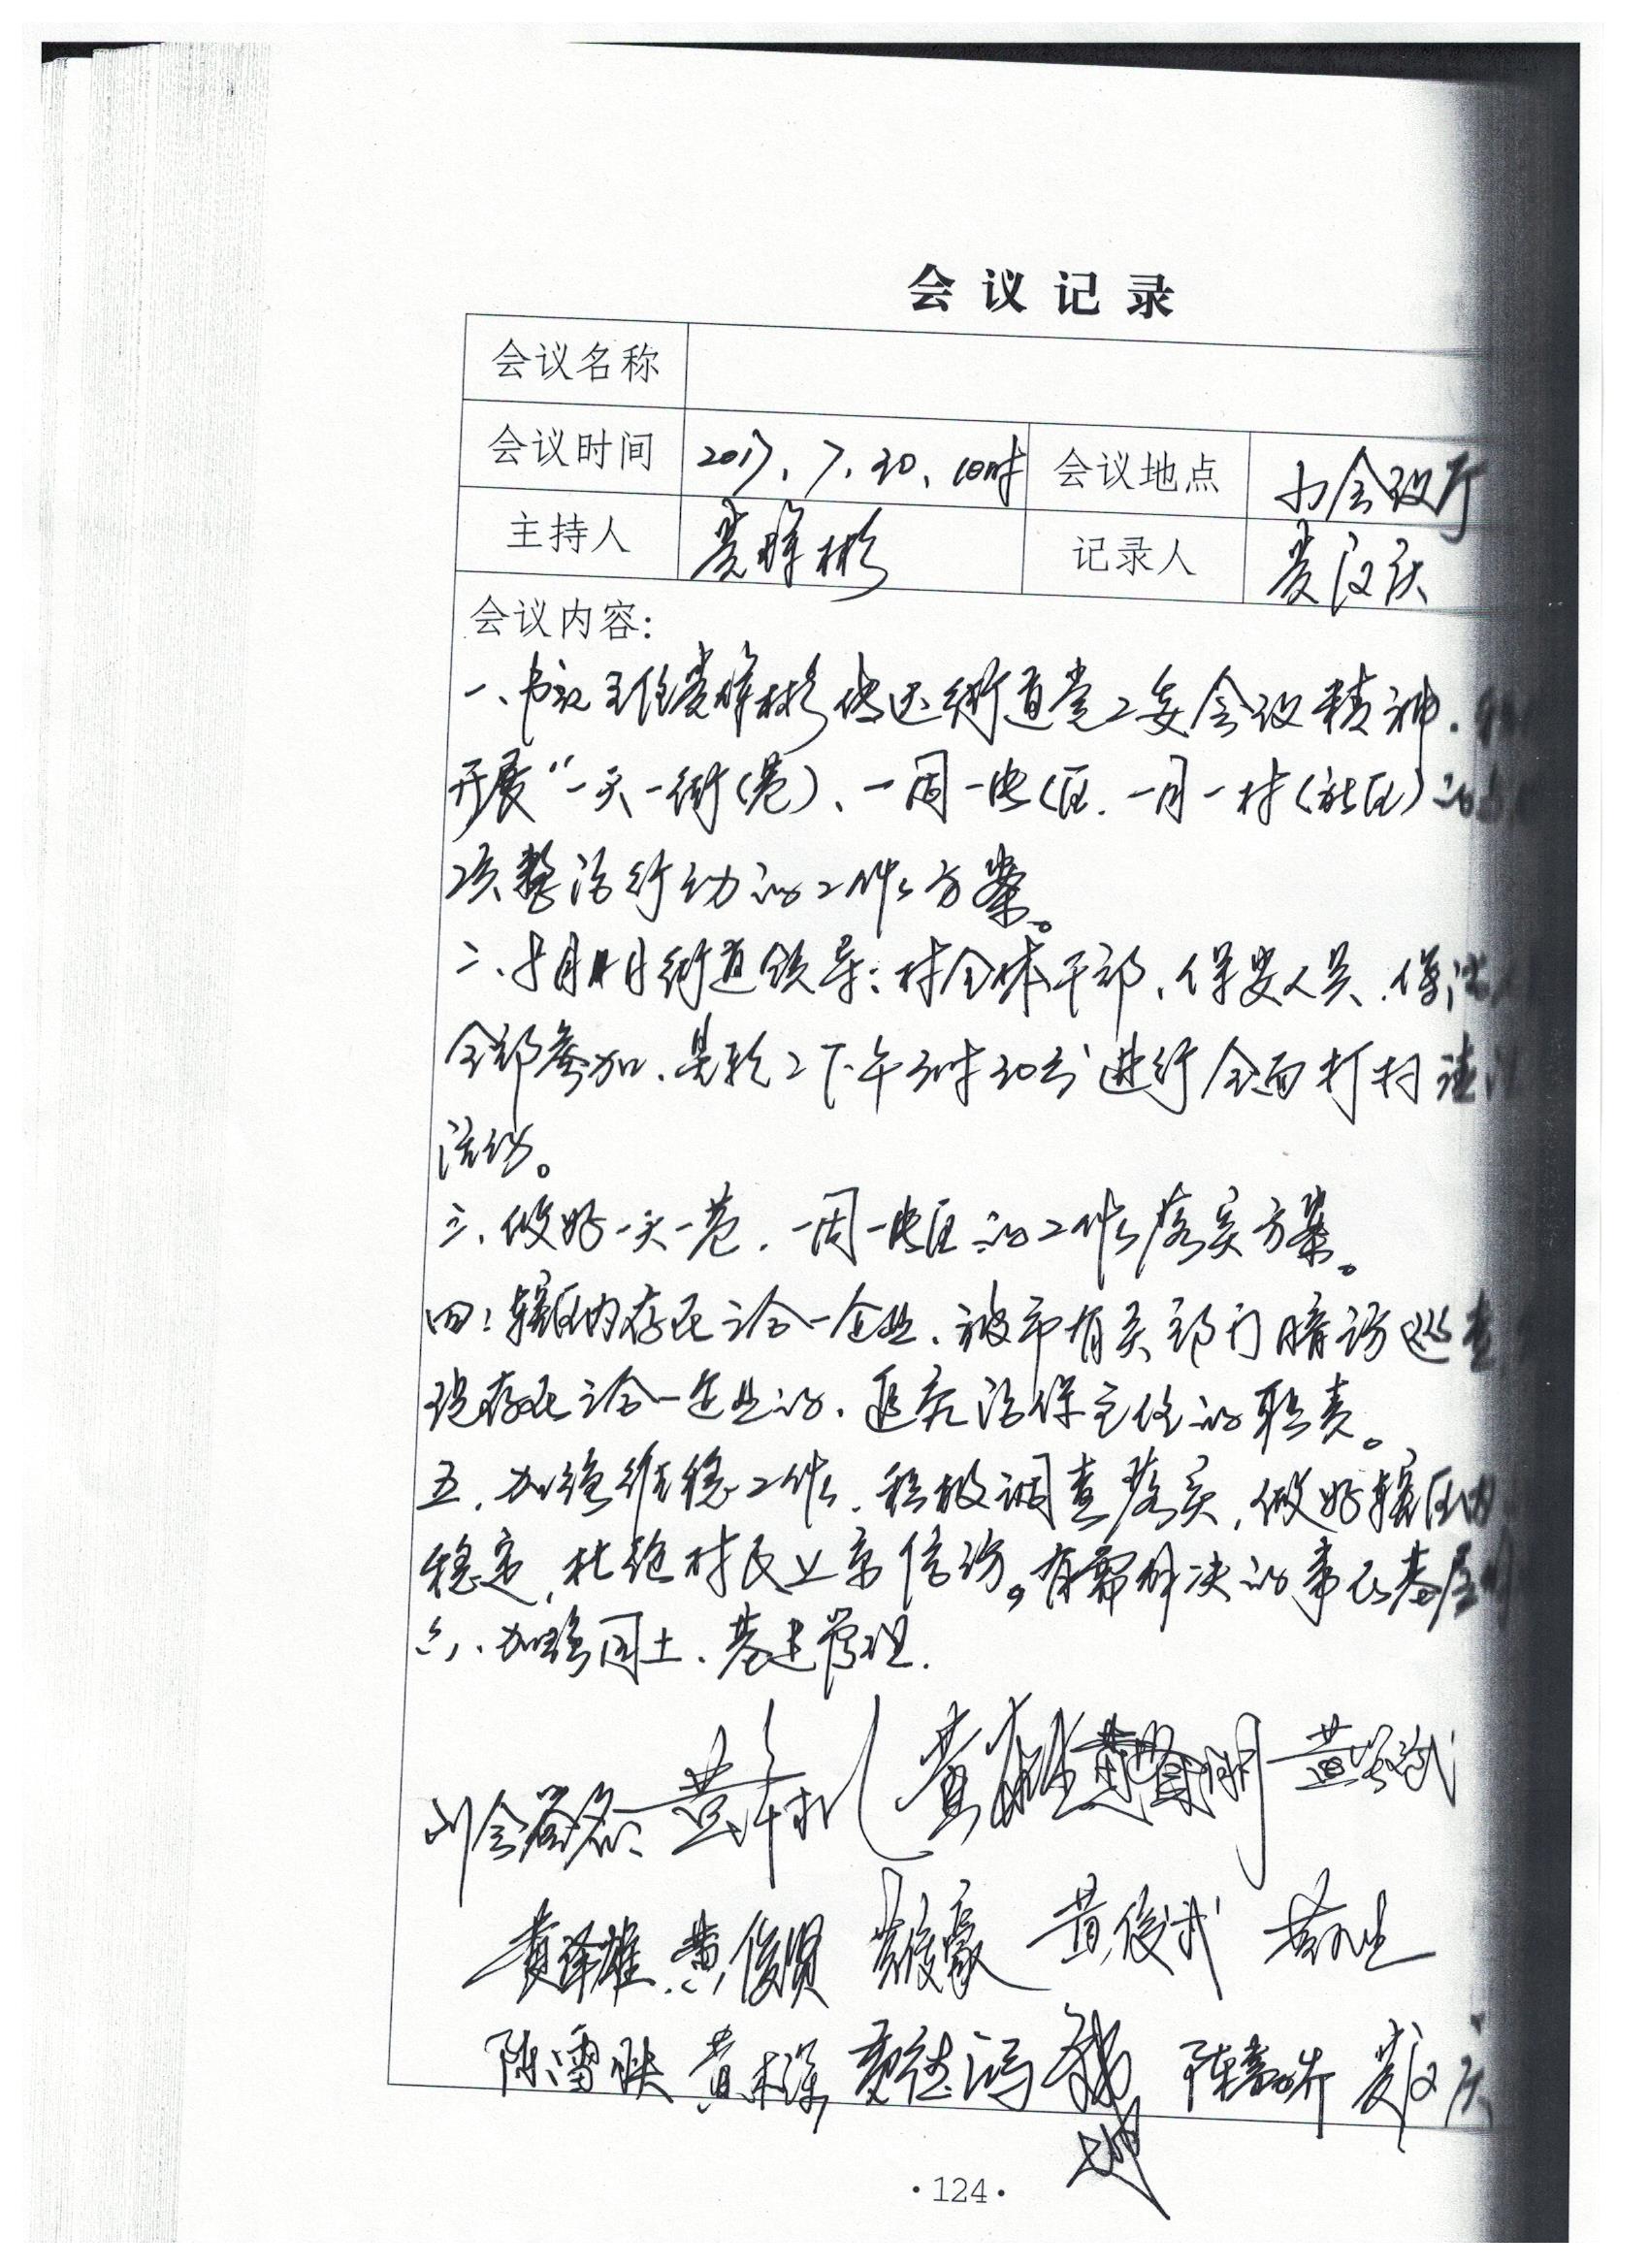 会议记录
会议名称
会议时间 2017.7.30.10时 会议地点 小会议厅
主持人 黄 彬 记录人 黄汉庆
会议内容:
一、书记主任黄 彬传达街道党工委会议精神.
开展“一天一街(巷)、一周一片(区.一月一村(社区)的
项整治行动的工作方案。
二、 月 日街道领导:村全体干部、保安人员.保洁
全部参加. 下午3时30分进行全面打扫
活动。
三、做好一天一巷.一周一片区的工作落实方案。
四:辖区内存在三合一企业.被市有关部门暗访巡查
现存在三合一企业的.追究治保主任的职责。
五.加强维稳工作.积极调查落实,做好辖区内
稳定,杜绝村民上京信访。有需解决的事在基层
六、加强国土、 建管理.
到会签名: 黄 黄 黄 明 黄
黄泽雄 黄俊贤 黄俊豪 黄俊武 黄 生
陈雷映 黄 黄 鸿 陈 黄汉庆
·124·